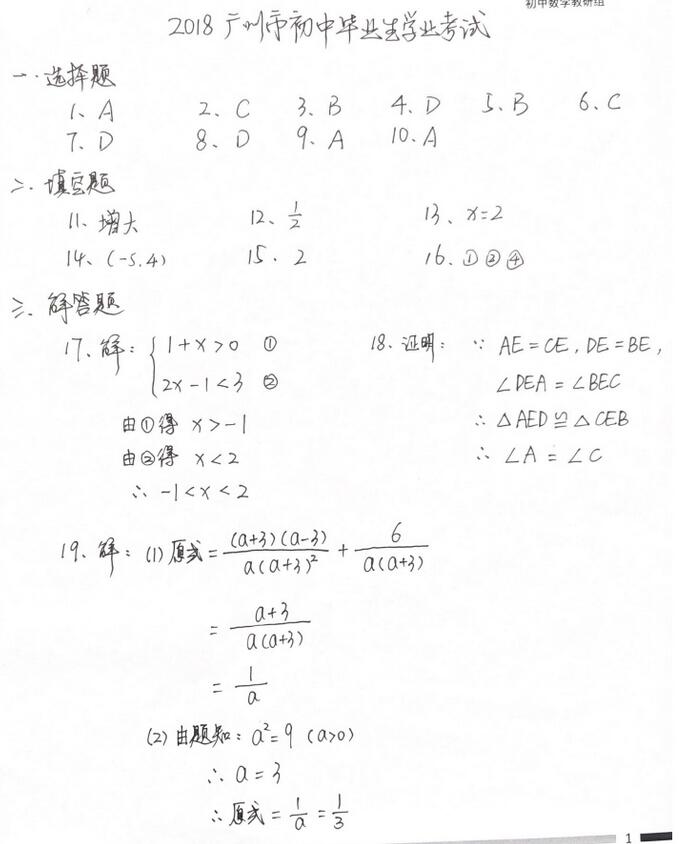 初中数学教研组
2018广州市初中毕业生学业考试
一.选择题
1、A 2、C 3、B 4、D 5、B 6、C
7、D 8、D 9、A 10、A
二.填空题
11、增大 12、1/2 13、x=2
14、(-5,4) 15、2 16、①②④
三、解答题
17、解：{1+x>0 ①
2x-1<3 ②
由①得 x>-1
由②得 x<2
∴ -1<x<2
18、证明：∵ AE=CE,DE=BE,
∠DEA=∠BEC
∴ △AED≌△CEB
∴ ∠A=∠C
19、解：(1)原式=(a+3)(a-3)/a(a+3)²+6/a(a+3)
=a+3/a(a+3)
=1/a
(2)由题知：a²=9 (a>0)
∴ a=3
∴原式=1/a=1/3
1